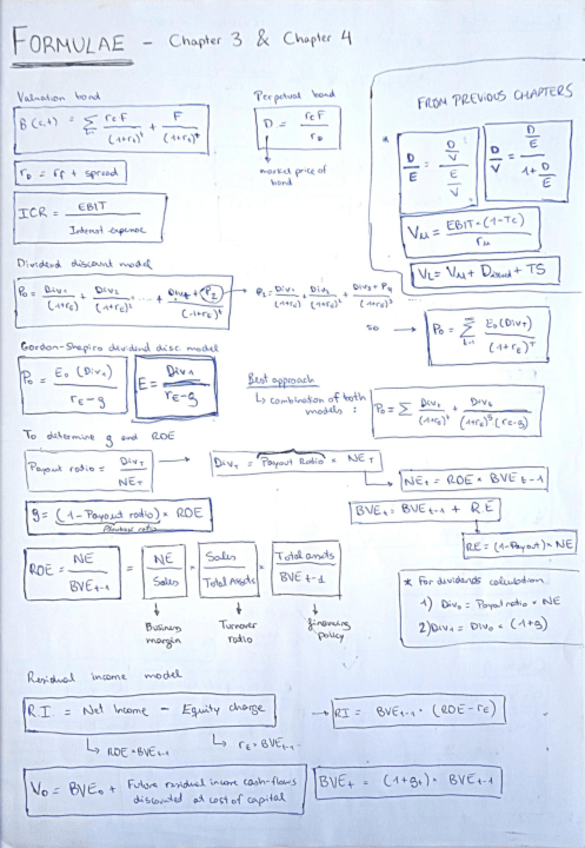 FORMULAE - Chapter 3 & Chapter 4
Valuation bond
B(c,t) = Σ rcF/(1+rD)^t + F/(1+rD)^t
rD = rf + spread
ICR = EBIT / Interest expense
Perpetual bond
D = rcF / rD
market price of bond
FROM PREVIOUS CHAPTERS
* D/E = (D/V) / (E/V)
D/V = (D/E) / (1 + D/E)
Vu = EBIT·(1-Tc) / ru
VL = Vu + TS
Dividend discount model
P0 = Div1/(1+rE) + Div2/(1+rE)² + ....
so → P0 = Σ E0(DivT) / (1+rE)^T
Gordon-Shapiro dividend disc. model
P0 = E0(Div1) / (rE-g)
E = Div1 / (rE-g)
Best approach
↳ combination of both models :
To determine g and ROE
Payout ratio = DivT / NET
→ DivT = Payout Ratio × NET
→ NEt = ROE × BVEt-1
g = (1-Payout ratio) × ROE
BVEt = BVEt-1 + RE
RE = (1-Payout) × NE
ROE = NE/BVEt-1 = NE/Sales × Sales/Total Assets × Total assets/BVEt-1
Business margin
Turnover ratio
financing policy
* For dividends calculation
1) Div0 = Payout ratio × NE
2) Div1 = Div0 × (1+g)
Residual income model
R.I. = Net Income - Equity charge
→ RI = BVEt-1 · (ROE - rE)
↳ ROE × BVEt-1
↳ rE × BVEt-1
V0 = BVE0 + Future residual income cash-flows discounted at cost of capital
BVEt = (1+gt) · BVEt-1